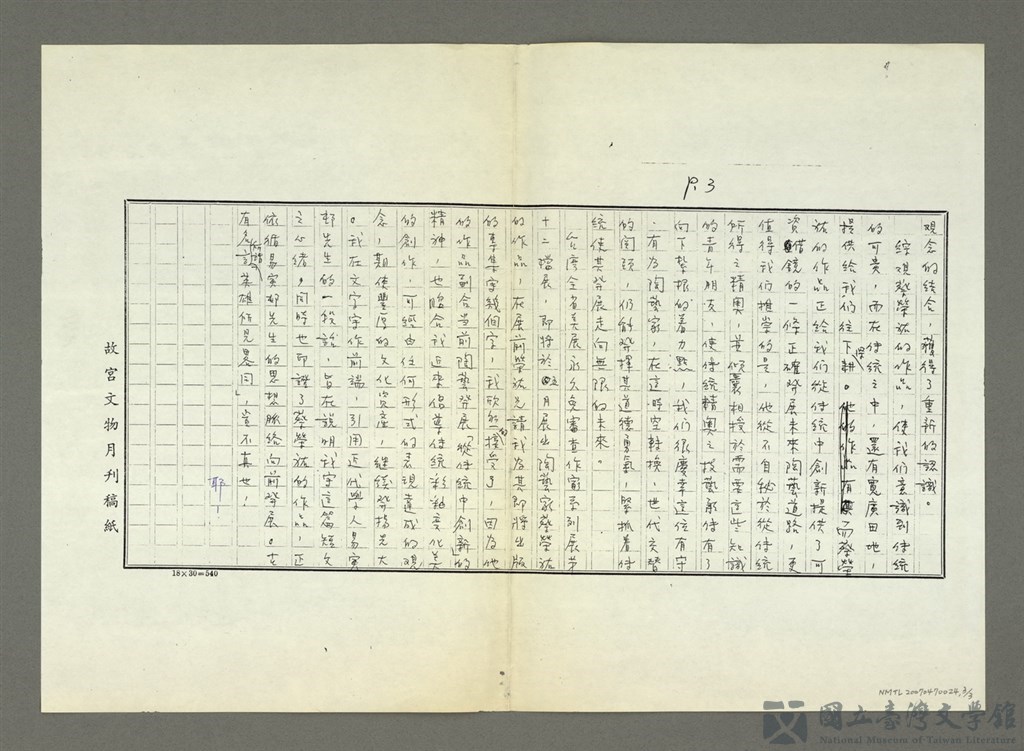 P. 3
觀念的結合，獲得了重新的認識。
綜觀蔡榮祐的作品，使我們意識到傳統
的可貴，而在傳統之中，還有寬廣田地，
提供給我們往下耕。而蔡榮
祐的作品正給我們從傳統中創新提供了可
資借鏡的一條正確發展未來陶藝道路，更
值得我們推崇的是，他從不自秘於從傳統
所得之精奧，並傾囊相授於需要這些知識
的青年朋友，使傳統精奧之技藝承傳有了
向下紮根的着力點，我們很慶幸這位有守
有為陶藝家，在這時空轉換，世代交替
的關頭，仍能發揮其道德勇氣，緊抓着傳
統使其發展走向無限的未來。
台灣全省美展永久免審查作家系列展第
十二檔展，即將於 月展出陶藝家蔡榮祐
的作品，在展前榮祐兄請我為其即將出版
的專集寫幾個字，我欣然接受了，因為他
的作品副合當前陶藝發展「從傳統中創新」的
精神，也脗合我近來倡導傳統彩釉變化美
的創作，可經由任何形式的表現達成的觀
念，期使豐厚的文化資產，繼續發揚光大
。我在文字寫作前端，引用近代學人易實
郁先生的一段話，旨在說明我寫這篇短文
之心緒，同時也印證了蔡榮祐的作品，正
依循易實郁先生的思想脈絡向前發展。古
有名言所謂英雄所見畧同」，豈不真也！
耶！
故宮文物月刊稿紙
18×30=540
NMTL 20070470024, 3/3
國立臺灣文學館
National Museum of Taiwan Literature